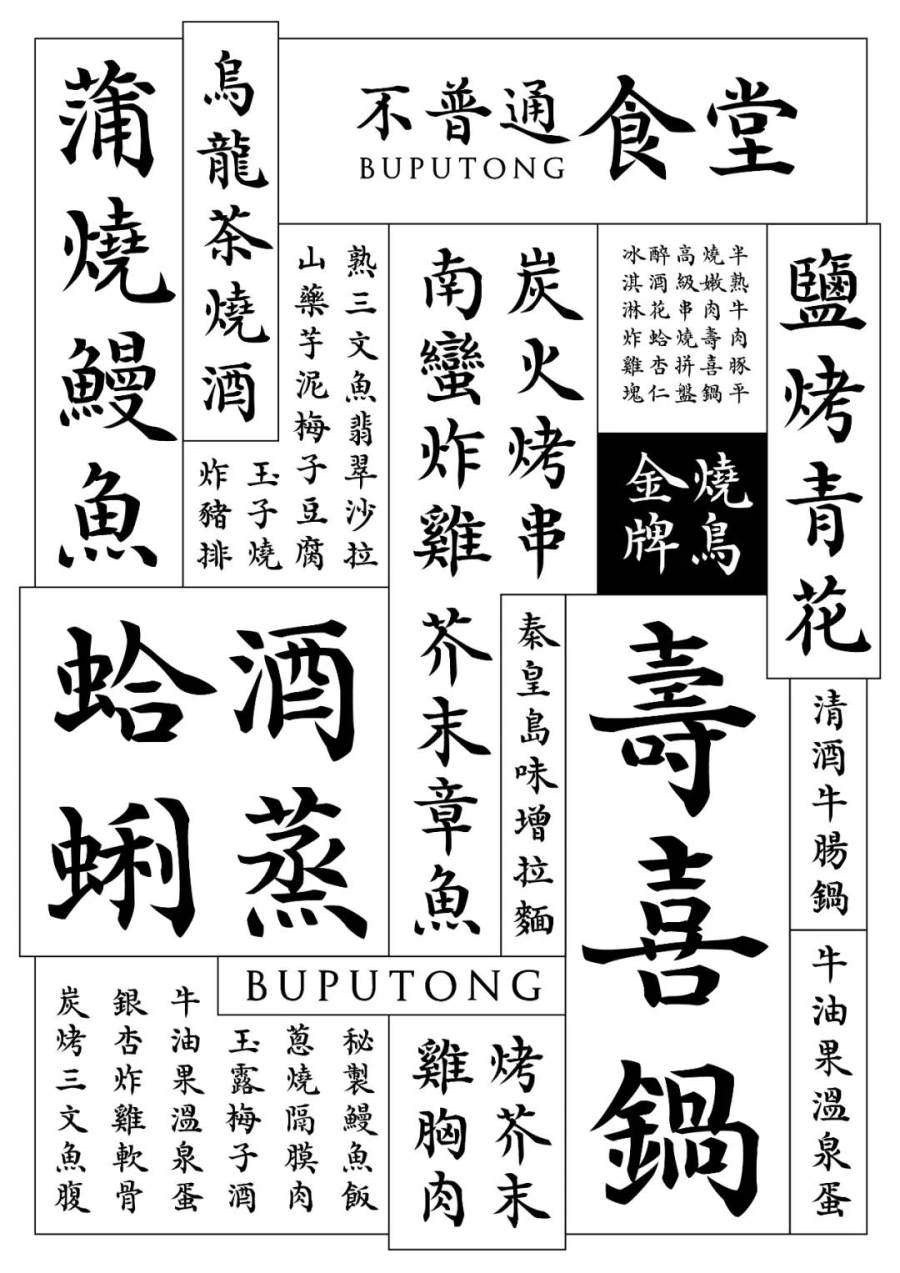 不普通食堂
BUPUTONG
烏龍茶燒酒
蒲燒鰻魚
鹽烤青花
半熟牛肉豚平
燒嫩肉壽喜鍋
高級串燒拼盤
醉酒花蛤杏仁
冰淇淋炸雞塊
燒鳥
金牌
炭火烤串
南蠻炸雞
芥末章魚
熟三文魚翡翠沙拉
山藥芋泥梅子豆腐
玉子燒
炸豬排
酒蒸
蛤蜊
秦皇島味增拉麵
壽喜鍋
清酒牛腸鍋
牛油果溫泉蛋
BUPUTONG
烤芥末
雞胸肉
秘製鰻魚飯
蔥燒隔膜肉
玉露梅子酒
牛油果溫泉蛋
銀杏炸雞軟骨
炭烤三文魚腹